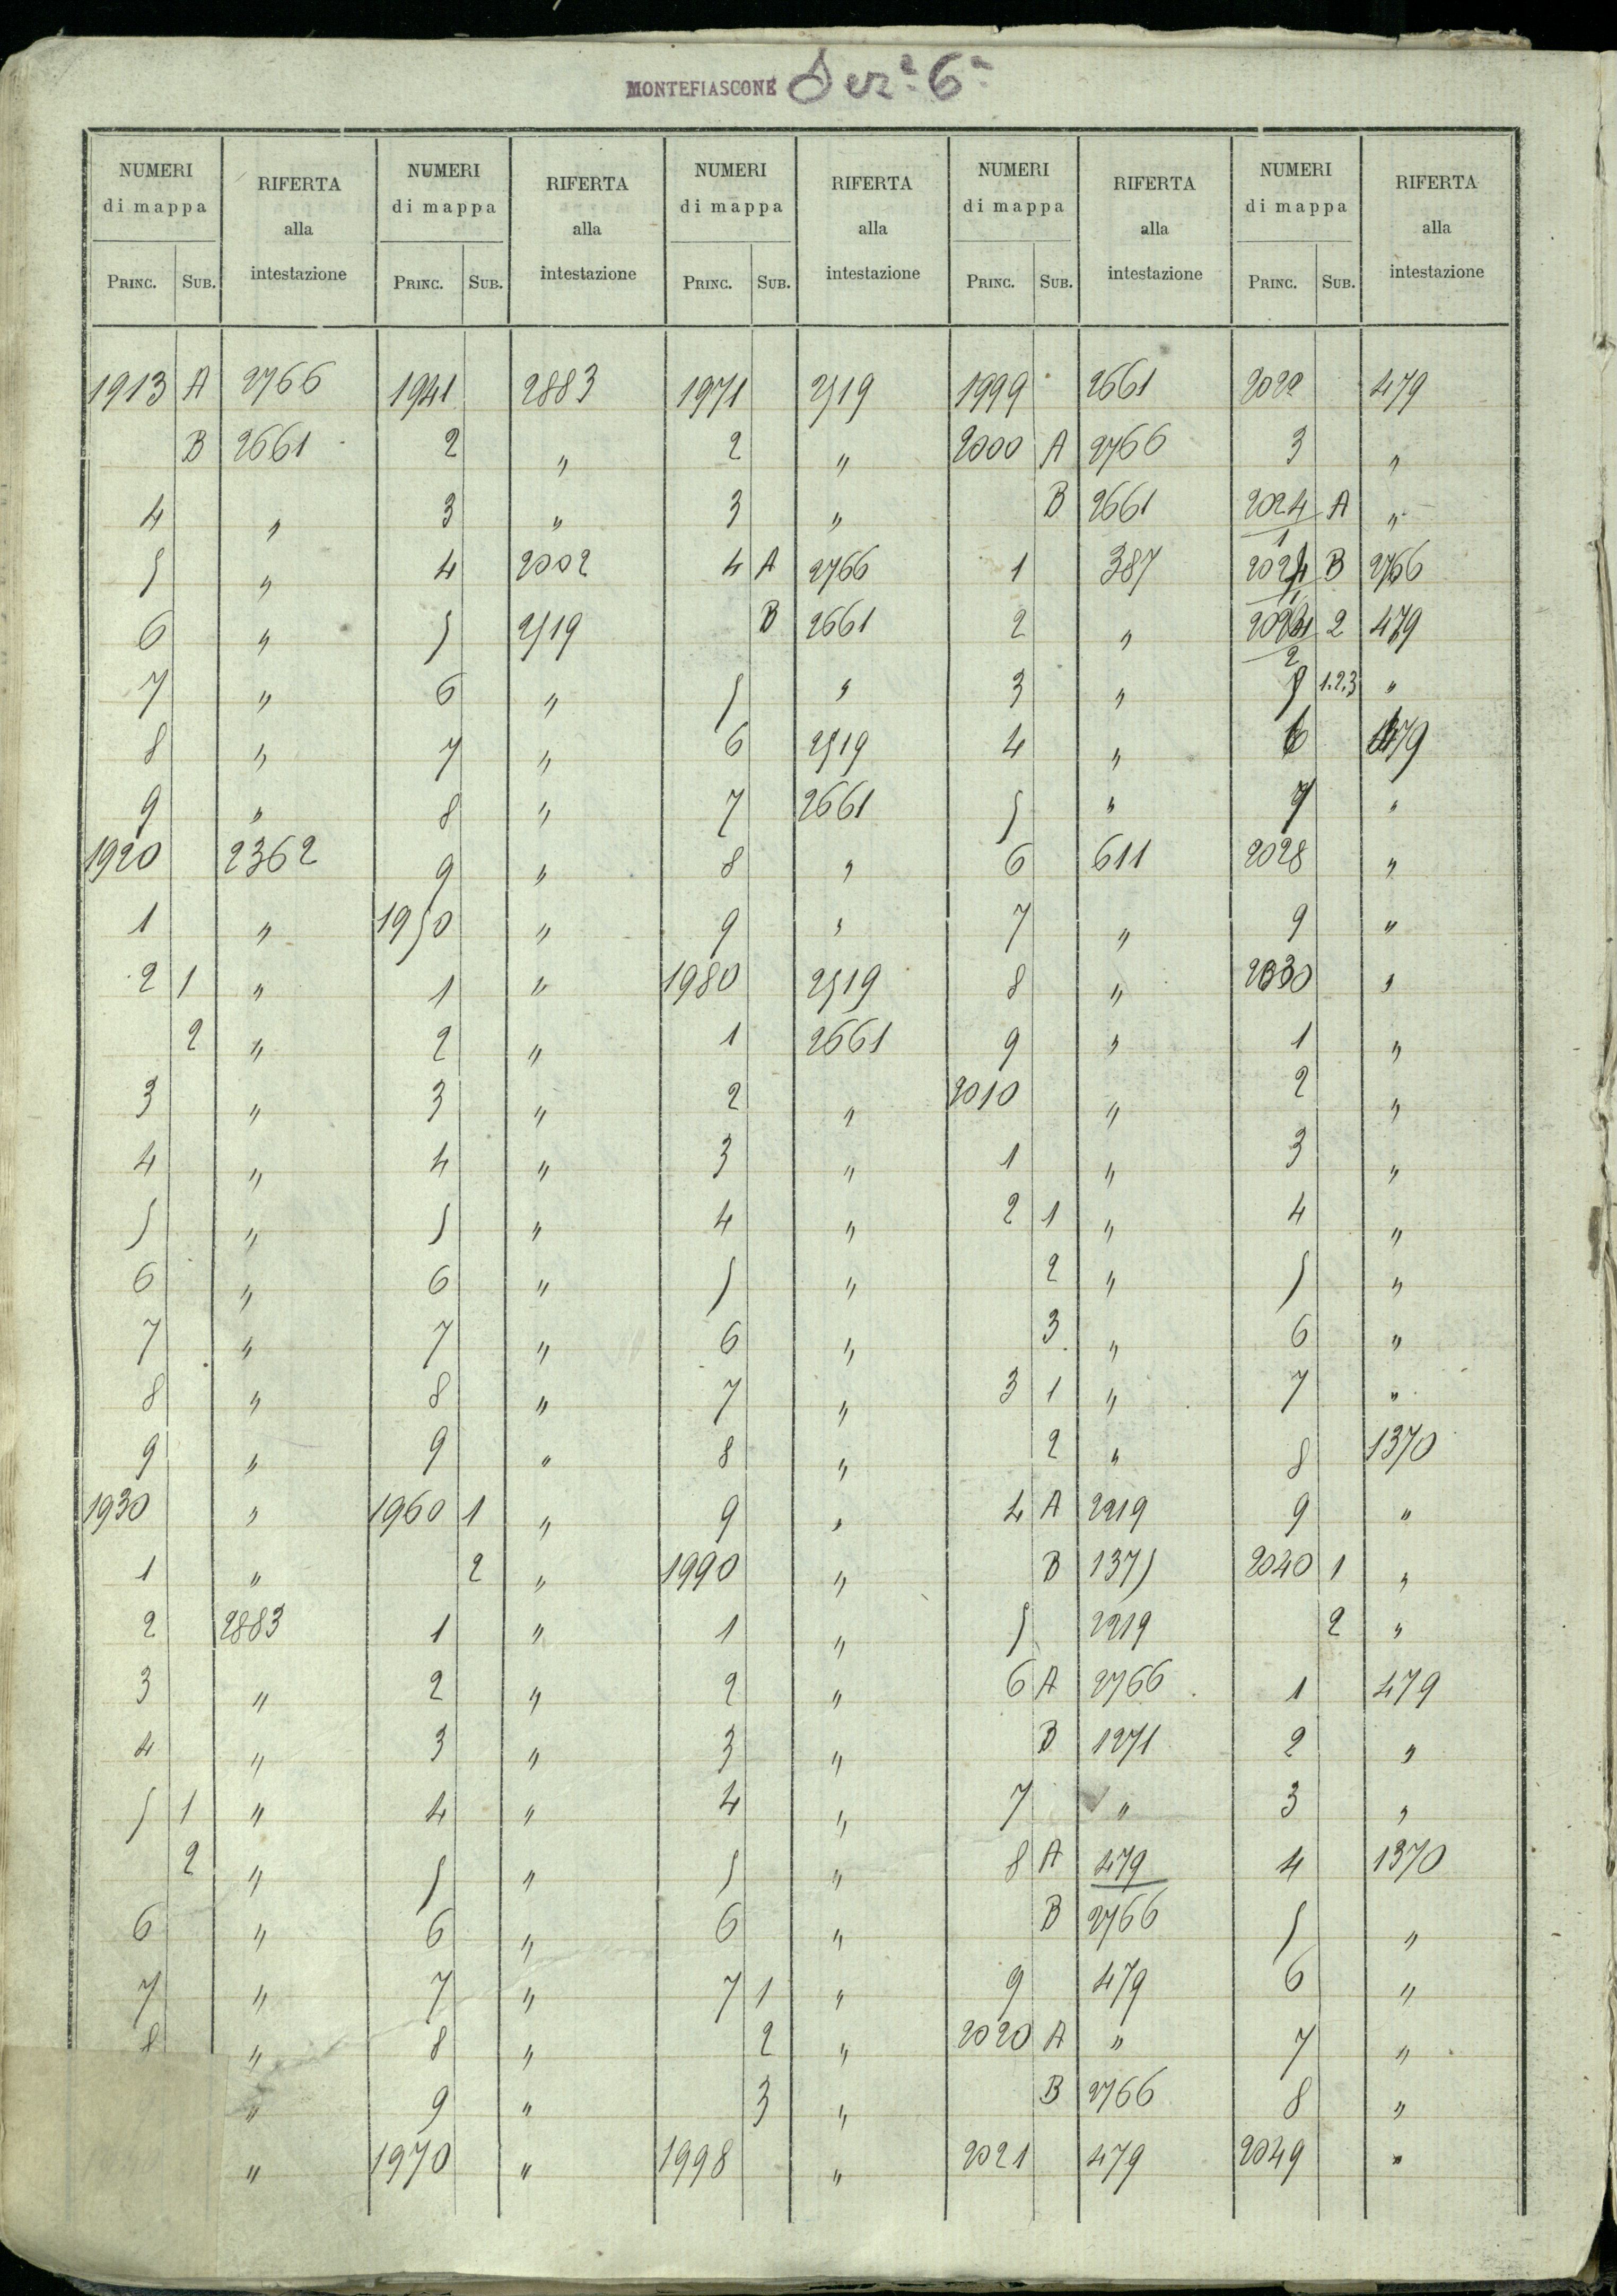 MONTEFIASCONE Sez.e 6a
NUMERI di mappa RIFERTA alla intestazione NUMERI di mappa RIFERTA alla intestazione NUMERI di mappa RIFERTA alla intestazione NUMERI di mappa RIFERTA alla intestazione NUMERI di mappa RIFERTA alla intestazione
PRINC. SUB. PRINC. SUB. PRINC. SUB. PRINC. SUB. PRINC. SUB.
1913 A 2766 1941 2883 1971 2519 1999 2661 2022 479
B 2661 2 " 2 " 2000 A 2766 3 "
4 " 3 " 3 " B 2661 2024/1 A "
5 " 4 2002 4 A 2766 1 387 2024/1 B 2766
6 " 5 2519 B 2661 2 " 2024/2 2 479
7 " 6 " 5 " 3 " 5 1.2.3 "
8 " 7 " 6 2519 4 " 6 479
9 " 8 " 7 2661 5 " 7 "
1920 2362 9 " 8 " 6 611 2028 "
1 " 1950 " 9 " 7 " 9 "
2 1 " 1 " 1980 2519 8 " 2030 "
2 " 2 " 1 2661 9 " 1 "
3 " 3 " 2 " 2010 " 2 "
4 " 4 " 3 " 1 " 3 "
5 " 5 " 4 " 2 1 " 4 "
6 " 6 " 5 " 2 " 5 "
7 " 7 " 6 " 3 " 6 "
8 " 8 " 7 " 3 1 " 7 "
9 " 9 " 8 " 2 " 8 1370
1930 " 1960 1 " 9 " 4 A 2219 9 "
1 " 2 " 1990 " B 1375 2040 1 "
2 2883 1 " 1 " 5 2219 2 "
3 " 2 " 2 " 6 A 2766 1 479
4 " 3 " 3 " B 1271 2 "
5 1 " 4 " 4 " 7 " 3 "
2 " 5 " 5 " 8 A 479 4 1370
6 " 6 " 6 " B 2766 5 "
7 " 7 " 7 1 " 9 479 6 "
8 " 8 " 2 " 2020 A " 7 "
" 9 " 3 " B 2766 8 "
" 1970 " 1998 " 2021 479 2049 "